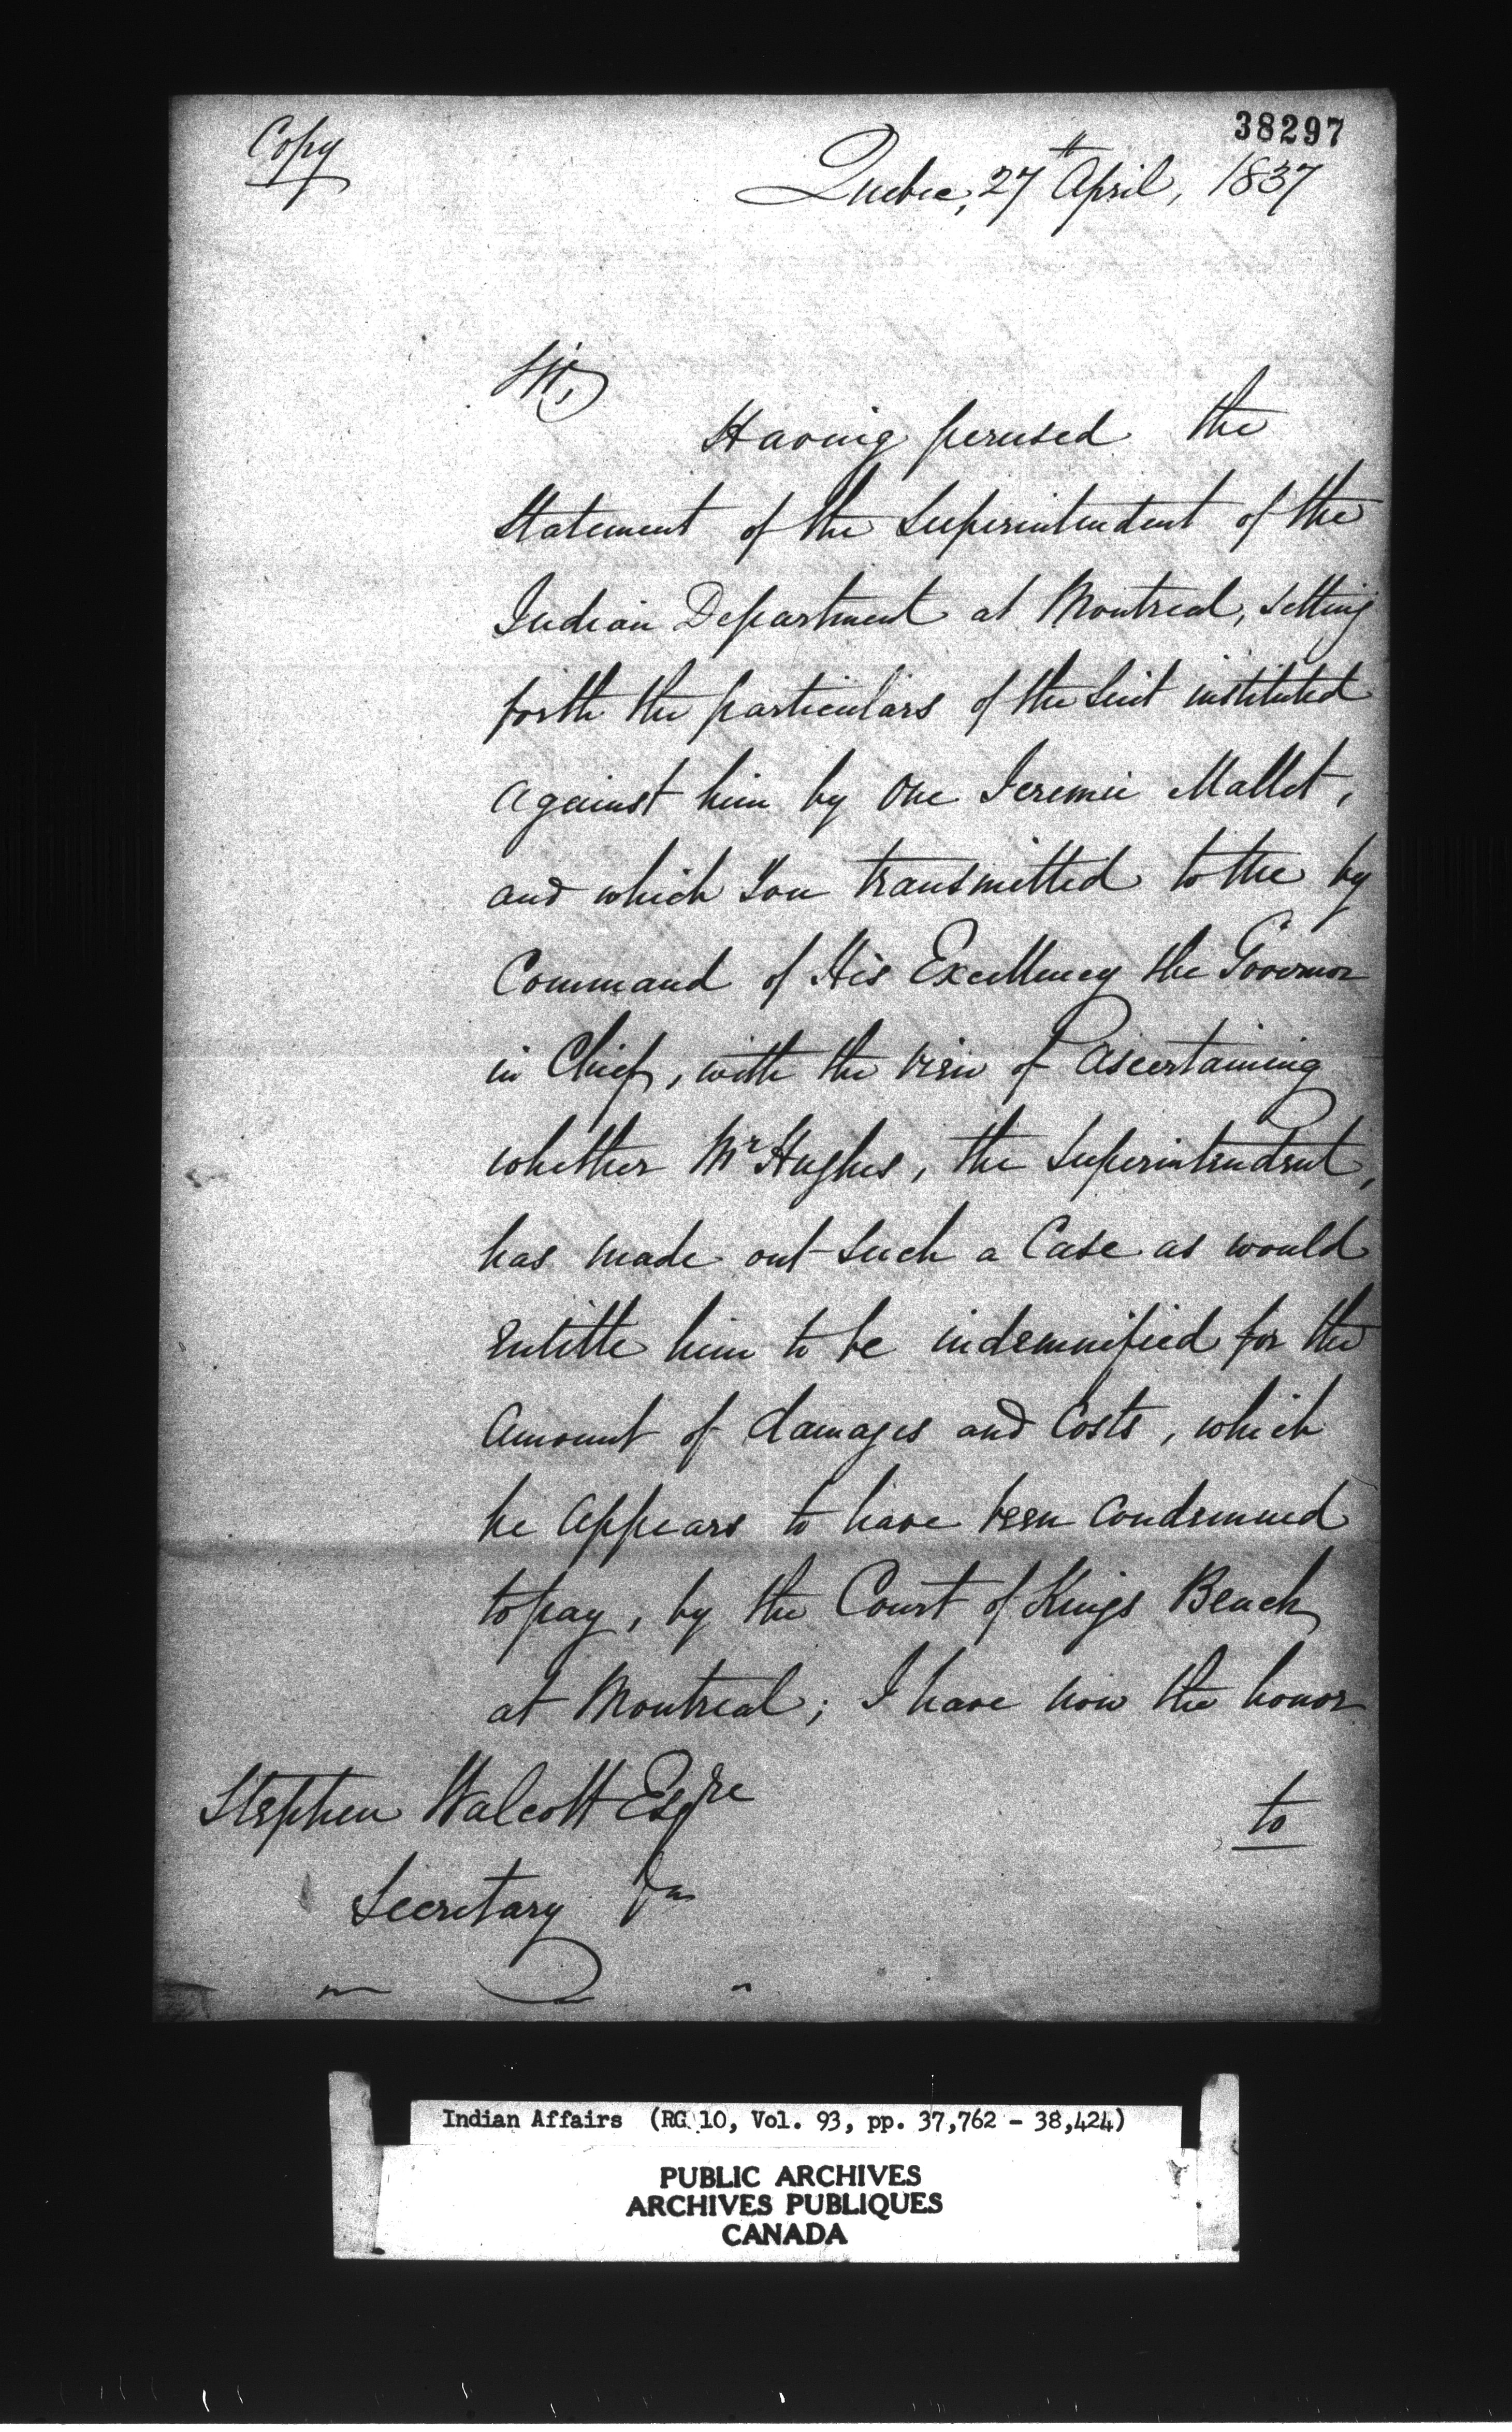 Copy
38297
Quebec, 27th April, 1837
Sir,
Having perused the
Statement of the Superintendent of the
Indian Department at Montreal, setting
forth the particulars of the Suit instituted
against him by One Jeremie Mallet,
and which You transmitted to me by
Command of His Excellency the Governor
in Chief, with the view of Ascertaining
whether Mr Hughes, the Superintendent,
has made out such a Case as would
entitle him to be indemnified for the
Amount of damages and Costs, which
he Appears to have been Condemned
to pay, by the Court of Kings Bench
at Montreal; I have now the honor
to
Stephen Walcott Esqre
Secretary
Indian Affairs (RG 10, Vol. 93, pp. 37,762 - 38,424)
PUBLIC ARCHIVES
ARCHIVES PUBLIQUES
CANADA